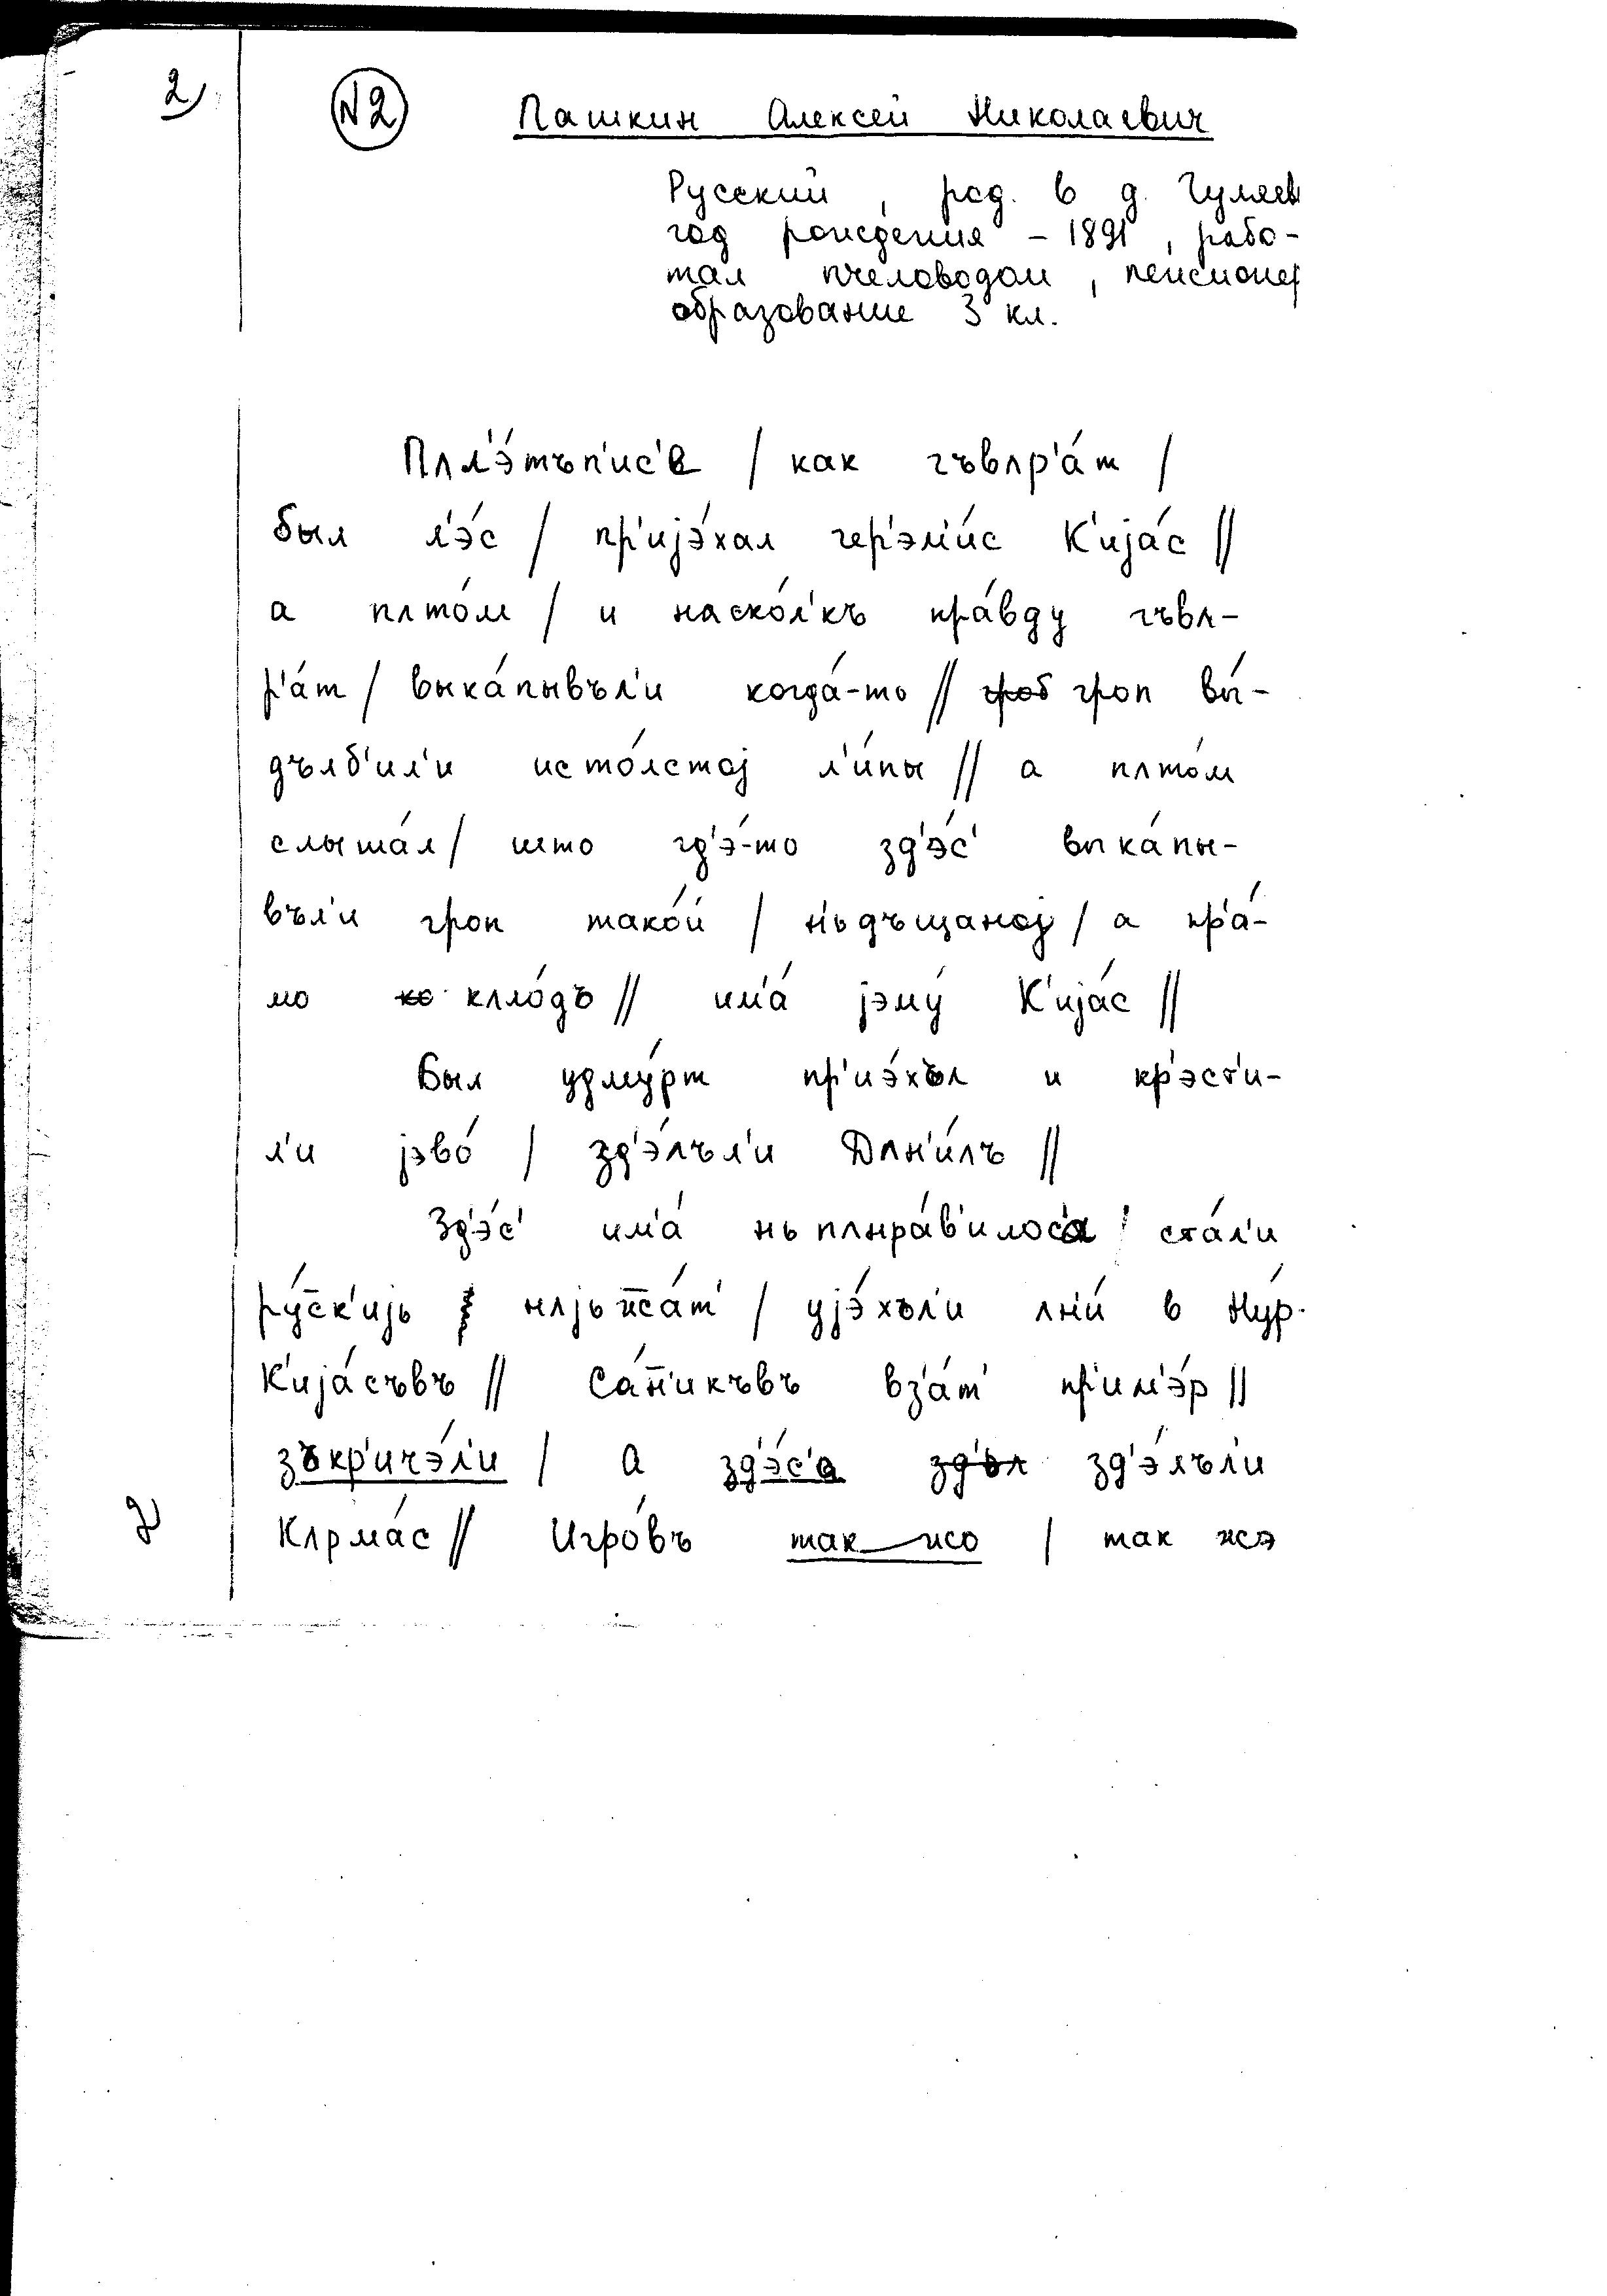 2)
N2 Пашкин Алексей Николаевич
Русский, род. в д. Гуляев
год рождения – 1891, рабо-
тал пчеловодом, пенсионер
образование 3 кл.
Пʌл'э́тъп'ис'е / как гъвʌр'а́т /
был л'э́с / пр'иjэ́хал чер'эм'и́с К'иjа́с //
а пʌто́м / и наско́л'къ пра́вду гъвʌ-
р'а́т / выка́пывъл'и когда́-то // гроб гроп вы́-
дълб'ил'и исто́лстоj л'и́пы // а пʌто́м
слыша́л / што гд'э́-то зд'э́с' выка́пы-
въл'и гроп тако́й / н'ьдъщаноj / а пр'а́-
мо ко кʌло́дъ // им'а́ jэму́ К'иjа́с //
Был удму́рт пр'иэ́хъл и кр'эст'и-
л'и jэво́ / зд'э́лъл'и Дʌн'и́лъ //
Зд'э́с' им'а́ нь пʌнра́в'илос'а / ста́л'и
ру́с̅к'иjь нʌjьжа́т' / уjэ́хъл'и ʌн'и́ в Нур-
К'иjа́съвъ // Са́н̅'икъвъ вз'а́т' пр'им'э́р //
зъкр'ичэ́л'и / а зд'э́с'а зд'ъл зд'э́лъл'и
Кʌрма́с // Игро́въ так жо / так жэ
2